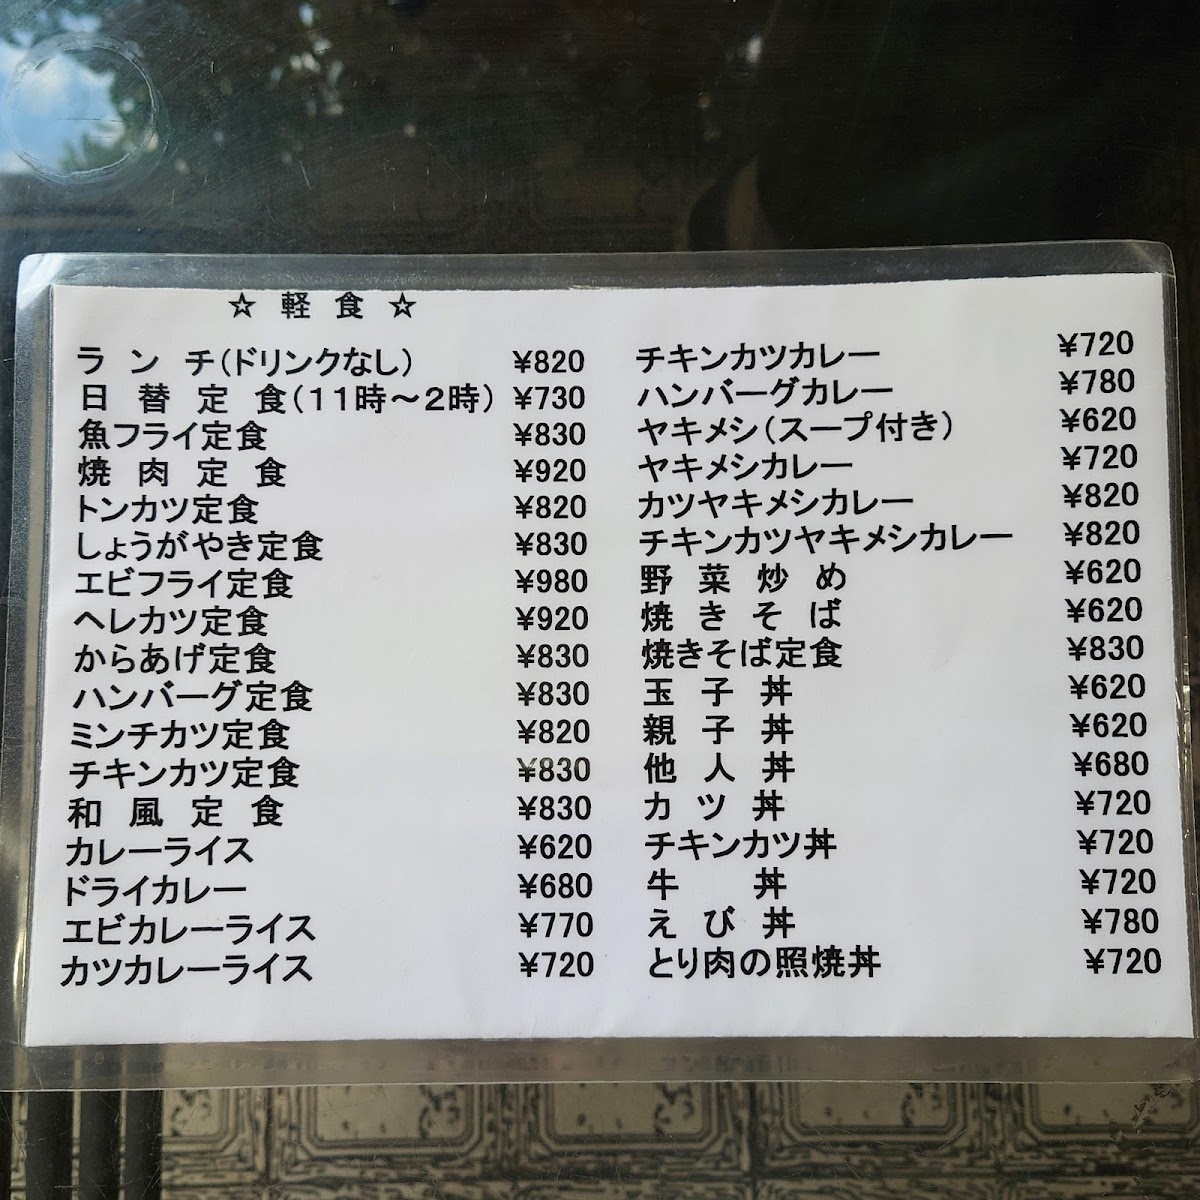 ☆ 軽 食 ☆
ラ ン チ(ドリンクなし) ¥820
日 替 定 食(11時～2時) ¥730
魚フライ定食 ¥830
焼 肉 定 食 ¥920
トンカツ定食 ¥820
しょうがやき定食 ¥830
エビフライ定食 ¥980
ヘレカツ定食 ¥920
からあげ定食 ¥830
ハンバーグ定食 ¥830
ミンチカツ定食 ¥820
チキンカツ定食 ¥830
和 風 定 食 ¥830
カレーライス ¥620
ドライカレー ¥680
エビカレーライス ¥770
カツカレーライス ¥720
チキンカツカレー ¥720
ハンバーグカレー ¥780
ヤキメシ(スープ付き) ¥620
ヤキメシカレー ¥720
カツヤキメシカレー ¥820
チキンカツヤキメシカレー ¥820
野 菜 炒 め ¥620
焼 き そ ば ¥620
焼きそば定食 ¥830
玉 子 丼 ¥620
親 子 丼 ¥620
他 人 丼 ¥680
カ ツ 丼 ¥720
チキンカツ丼 ¥720
牛 丼 ¥720
え び 丼 ¥780
とり肉の照焼丼 ¥720